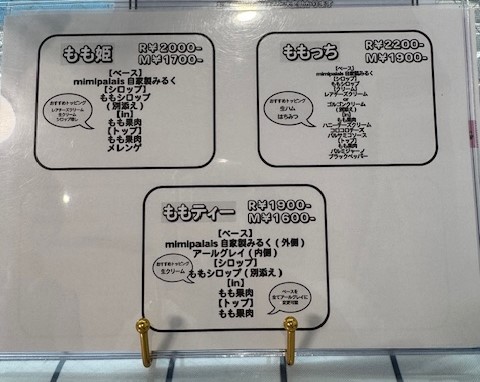 もも姫
R¥2000-
M¥1700-
【ベース】
mimipalais 自家製みるく
【シロップ】
ももシロップ
(別添え)
【in】
もも果肉
【トップ】
もも果肉
メレンゲ
おすすめトッピング
レアチーズクリーム
生クリーム
ももっち
R¥2200-
M¥1900-
【ベース】
mimipalais 自家製みるく
【シロップ】
ももシロップ
【クリーム】
レアチーズクリーム
or
ゴルゴンクリーム
(別添え)
【in】
もも果肉
ハニーチーズクリーム
コロコロチーズ
バルサミコソース
【トップ】
もも果肉
パルミジャーノ
ブラックペッパー
おすすめトッピング
生ハム
はちみつ
ももティー
R¥1900-
M¥1600-
【ベース】
mimipalais 自家製みるく(外側)
アールグレイ(内側)
【シロップ】
ももシロップ(別添え)
【in】
もも果肉
【トップ】
もも果肉
おすすめトッピング
生クリーム
ベースを
全てアールグレイに
変更可能